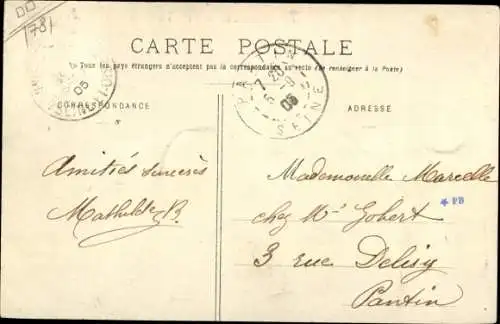 (78)
CARTE POSTALE
Tous les pays étrangers n'acceptent pas la correspondance au recto (Se renseigner à la Poste)
CORRESPONDANCE
ADRESSE
05
PANTIN
7 20
5 -9
05
SEINE
Amitiés sincères
Mathilde B.
Mademoiselle Marcelle
chez Mr Gobert
3 rue Delizy
Pantin
* PD